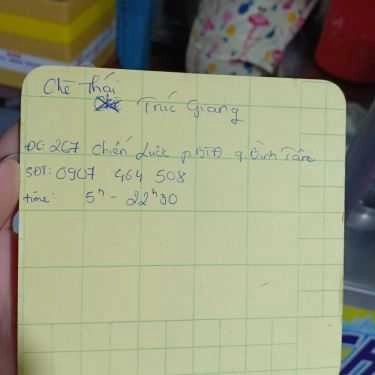 Chè Thái
Trúc Giang
ĐC: 267 Chiến Lược p.BTĐ q.Bình Tân
SĐT: 0907 464 508
time: 5h - 22h30